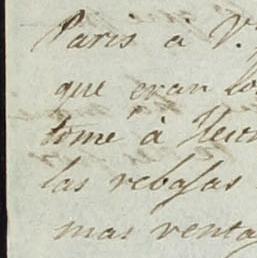 Paris à V.
que eran lo
tome à
las rebajas
mas venta